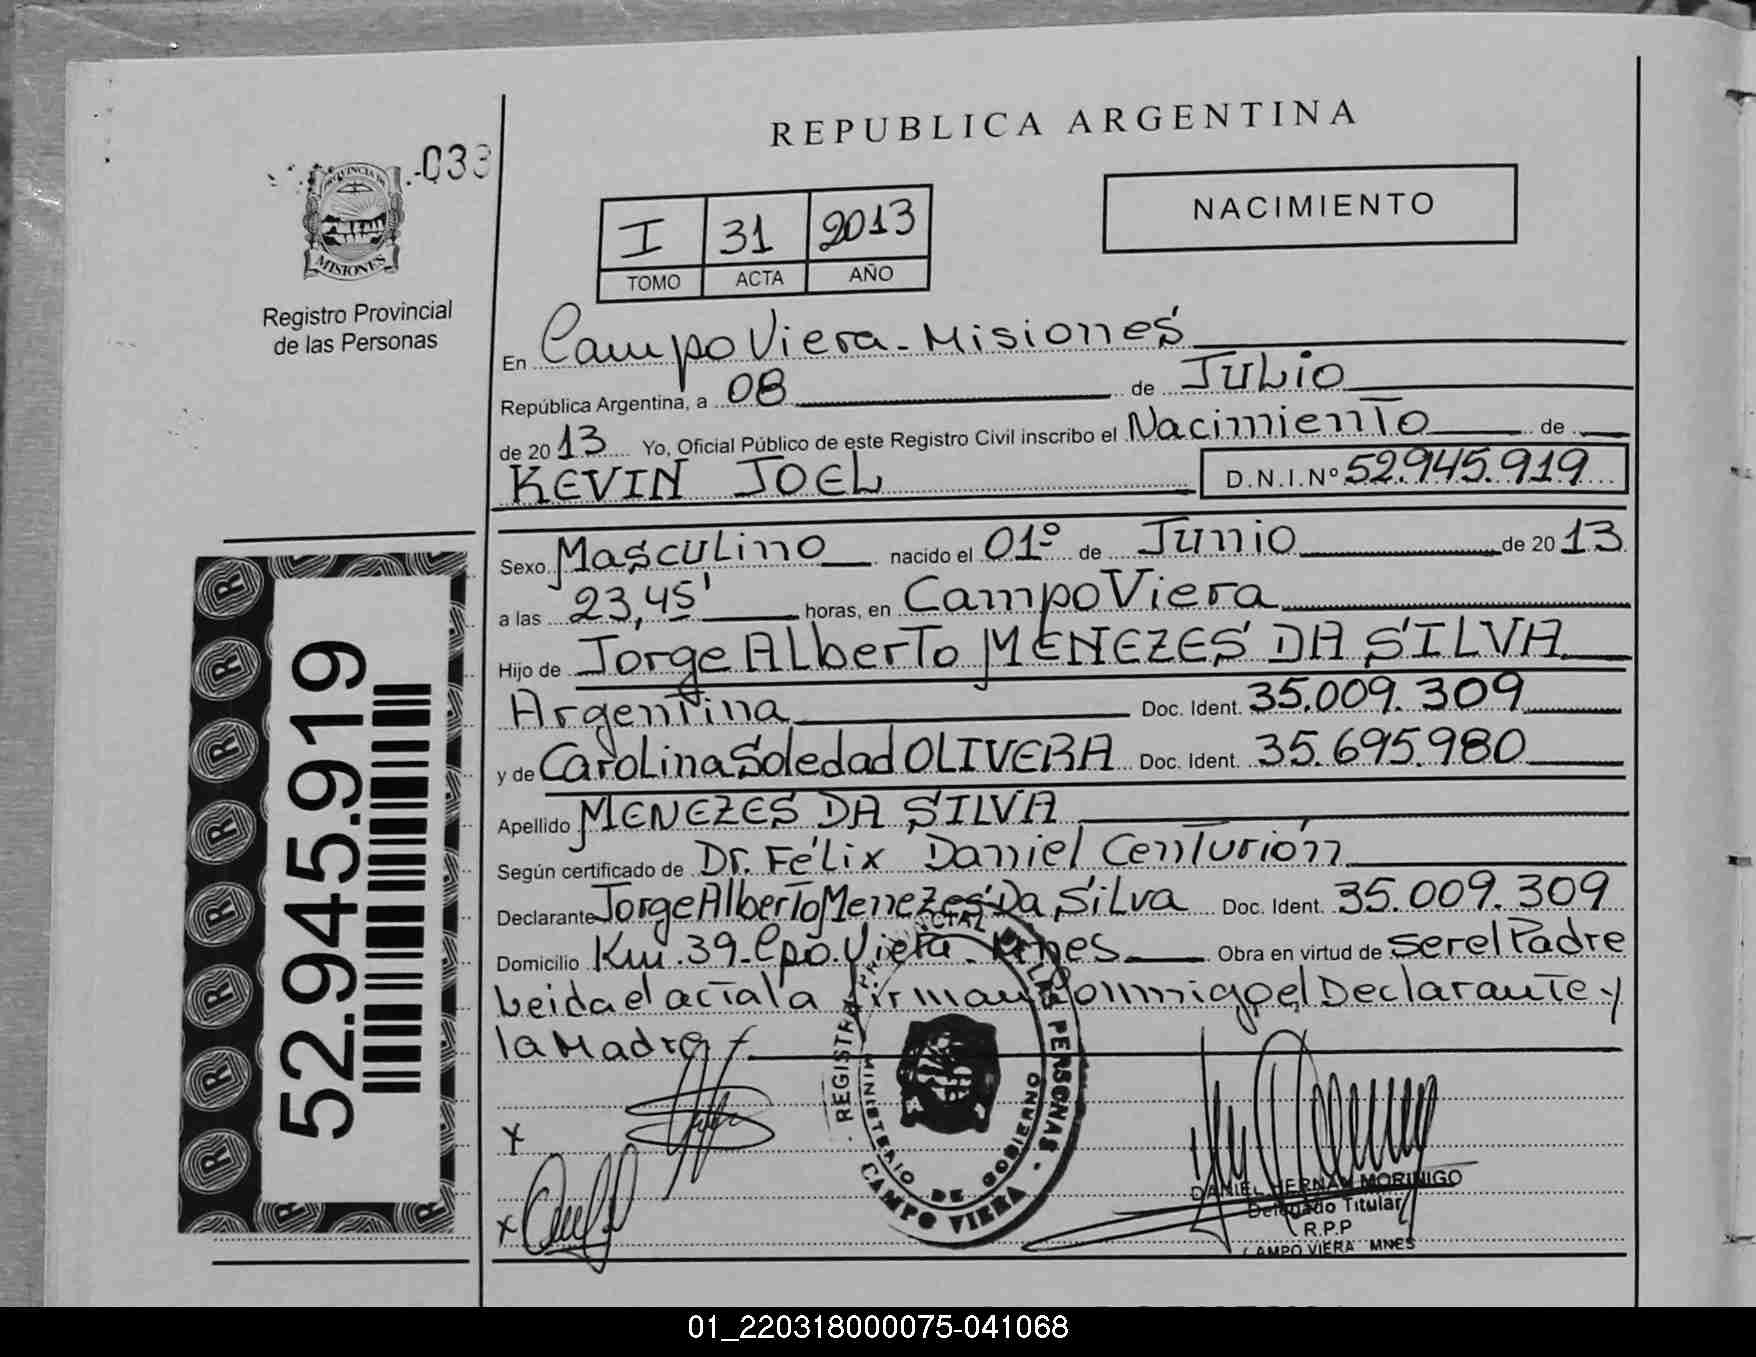 REPUBLICA ARGENTINA
033
PROVINCIA DE
MISIONES
Registro Provincial
de las Personas
I 31 2013
TOMO ACTA AÑO
NACIMIENTO
En Campo Viera - Misiones
República Argentina, a 08 de Julio
de 2013 Yo, Oficial Público de este Registro Civil inscribo el Nacimiento de
KEVIN JOEL D.N.I.Nº 52.945.919
Sexo Masculino nacido el 01º de Junio de 2013
a las 23,45' horas, en Campo Viera
Hijo de Jorge Alberto MENEZES DA SILVA
Argentina Doc. Ident. 35.009.309
y de Carolina Soledad OLIVERA Doc. Ident. 35.695.980
Apellido MENEZES DA SILVA
Según certificado de Dr. Félix Daniel Centurión
Declarante Jorge Alberto Menezes Da Silva Doc. Ident. 35.009.309
Domicilio Km. 39 - Cpo. Viera - Mnes Obra en virtud de ser el Padre
Leida el acta la firman conmigo el Declarante y
la Madre
REGISTRO PROVINCIAL DE LAS PERSONAS
MINISTERIO DE GOBIERNO
CAMPO VIERA
DANIEL HERNAN MORINIGO
Delegado Titular
R.P.P
CAMPO VIERA MNES
52.945.919
01_220318000075-041068